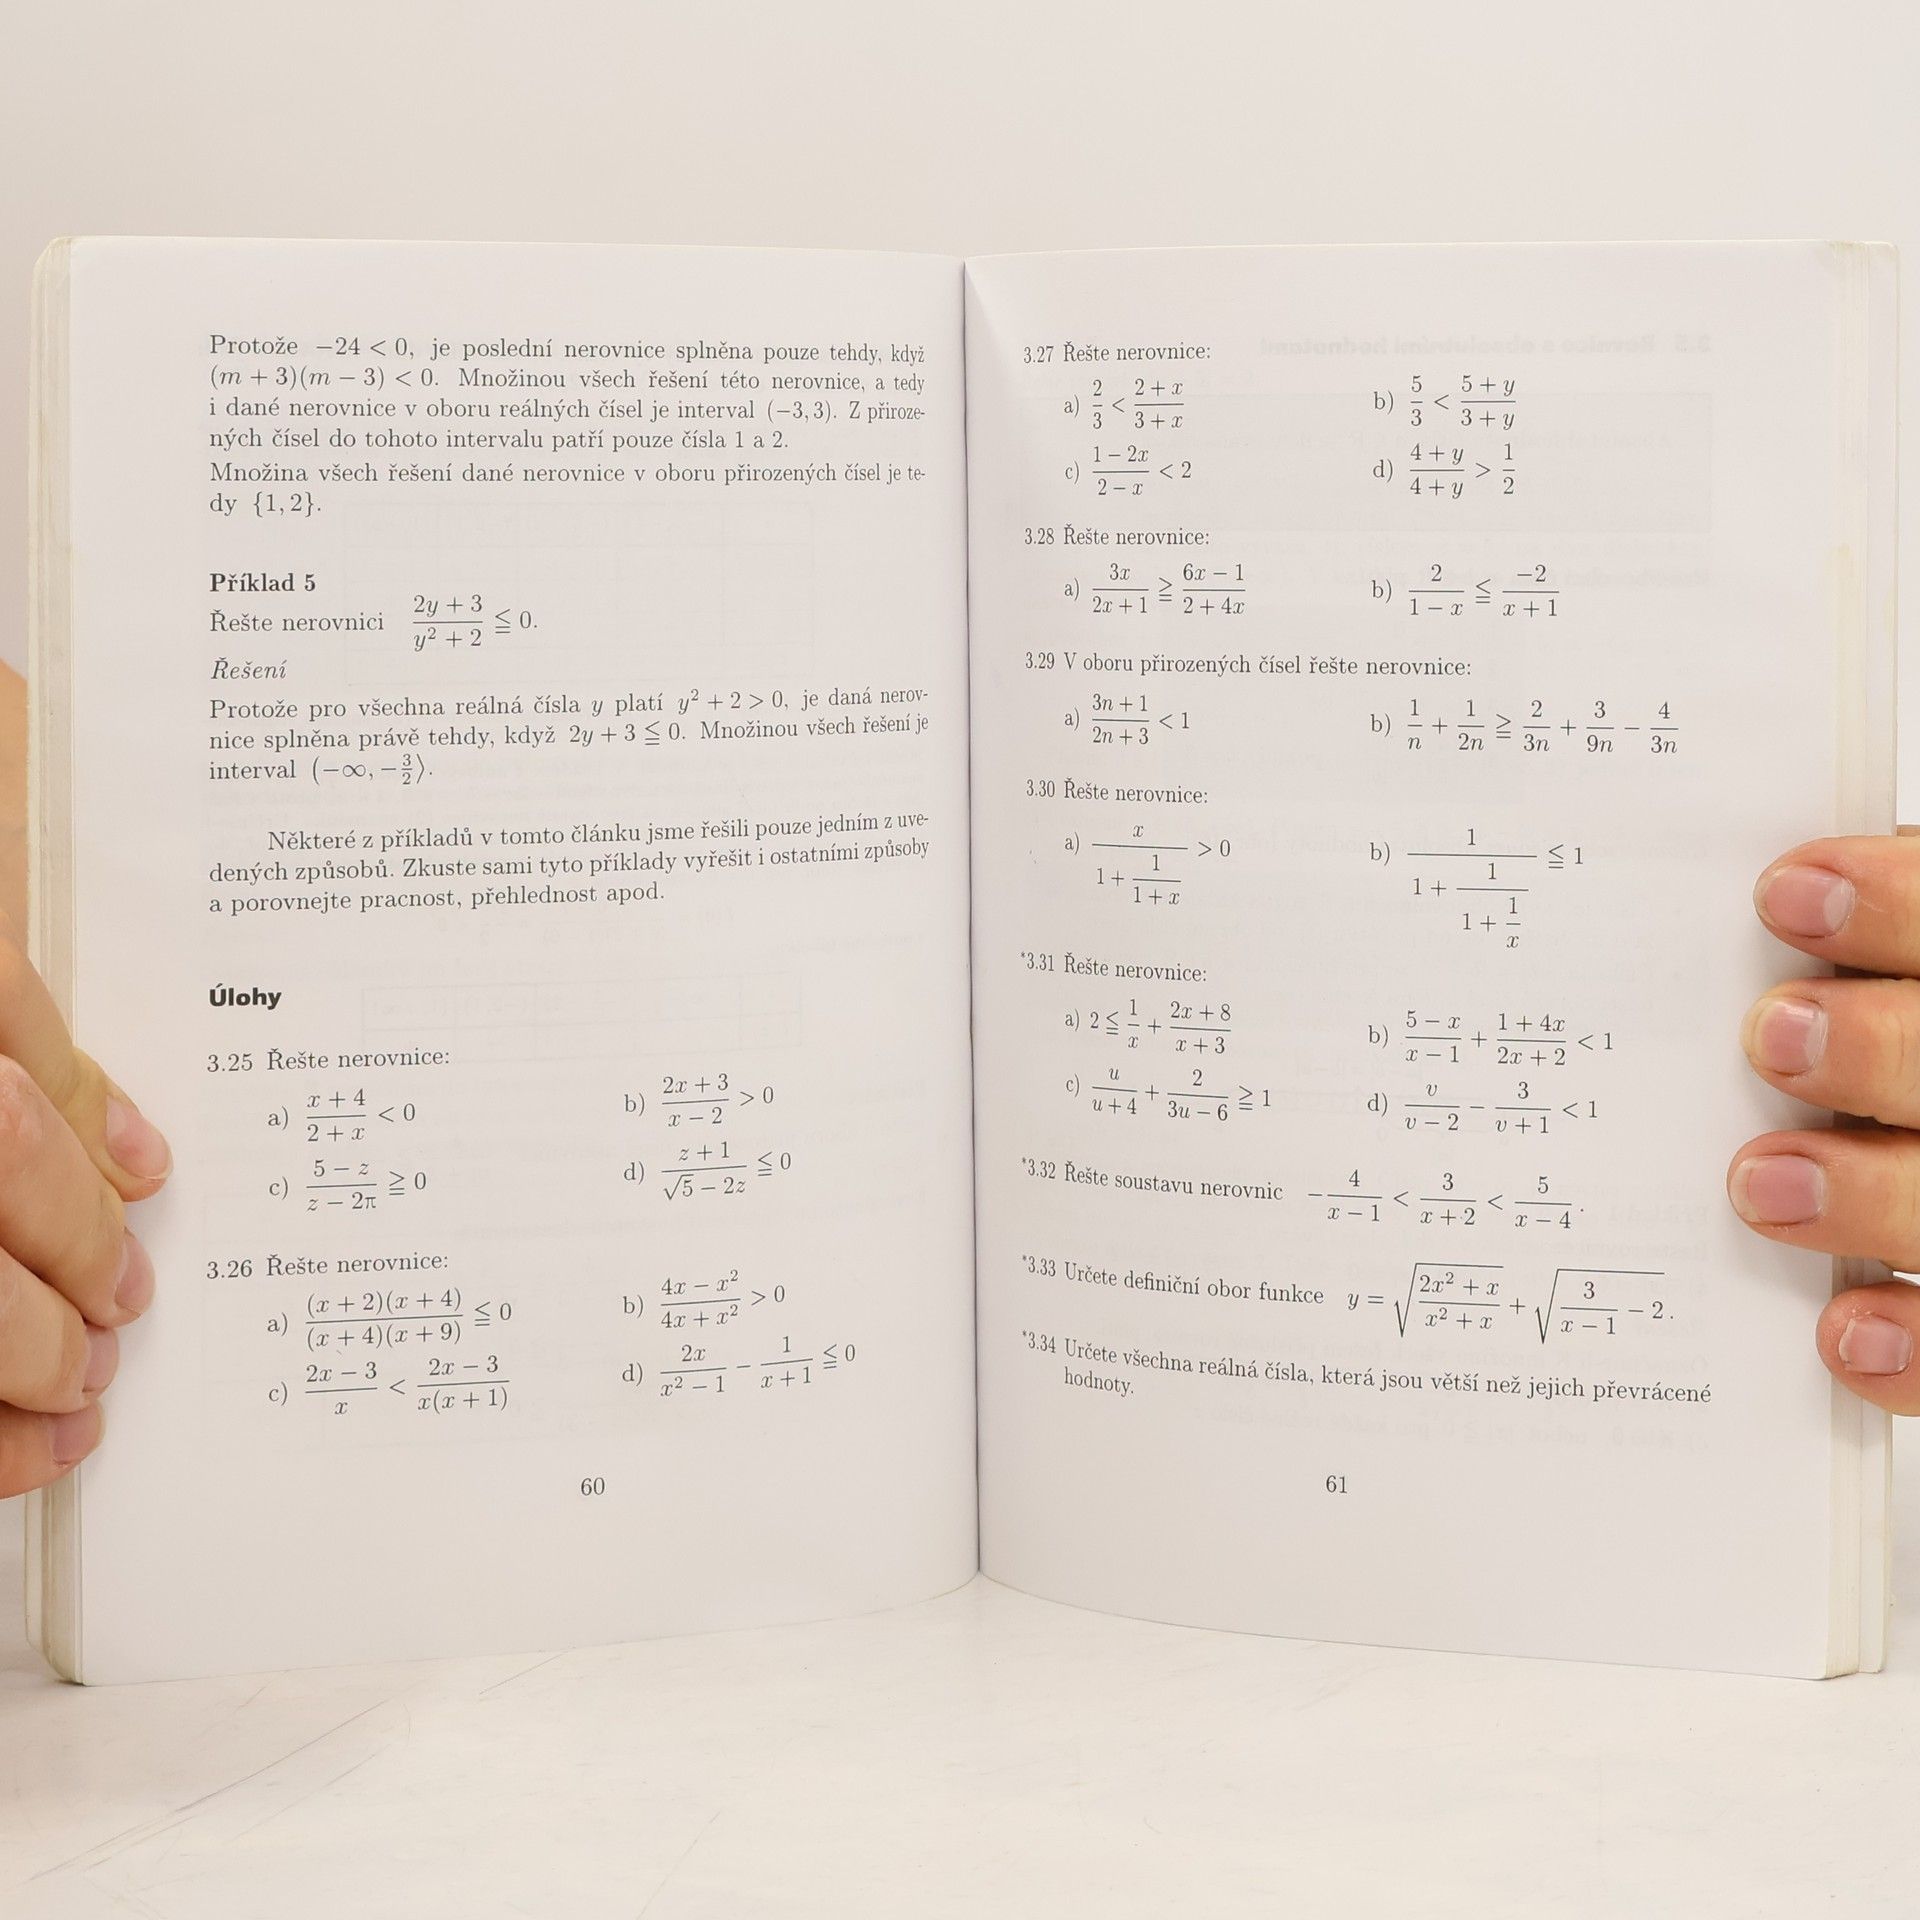 Protože −24 < 0, je poslední nerovnice splněna pouze tehdy, když
(m + 3)(m − 3) < 0. Množinou všech řešení této nerovnice, a tedy
i dané nerovnice v oboru reálných čísel je interval (−3, 3). Z přiroze-
ných čísel do tohoto intervalu patří pouze čísla 1 a 2.
Množina všech řešení dané nerovnice v oboru přirozených čísel je te-
dy {1, 2}.
Příklad 5
Řešte nerovnici (2y + 3)/(y² + 2) ≦ 0.
Řešení
Protože pro všechna reálná čísla y platí y² + 2 > 0, je daná nerov-
nice splněna právě tehdy, když 2y + 3 ≦ 0. Množinou všech řešení je
interval (−∞, −3/2⟩.
Některé z příkladů v tomto článku jsme řešili pouze jedním z uve-
dených způsobů. Zkuste sami tyto příklady vyřešit i ostatními způsoby
a porovnejte pracnost, přehlednost apod.
Úlohy
3.25 Řešte nerovnice:
a) (x + 4)/(2 + x) < 0 b) (2x + 3)/(x − 2) > 0
c) (5 − z)/(z − 2π) ≧ 0 d) (z + 1)/(√5 − 2z) ≦ 0
3.26 Řešte nerovnice:
a) ((x + 2)(x + 4))/((x + 4)(x + 9)) ≦ 0 b) (4x − x²)/(4x + x²) > 0
c) (2x − 3)/x < (2x − 3)/(x(x + 1)) d) 2x/(x² − 1) − 1/(x + 1) ≦ 0
60
3.27 Řešte nerovnice:
a) 2/3 < (2 + x)/(3 + x) b) 5/3 < (5 + y)/(3 + y)
c) (1 − 2x)/(2 − x) < 2 d) (4 + y)/(4 + y) > 1/2
3.28 Řešte nerovnice:
a) 3x/(2x + 1) ≧ (6x − 1)/(2 + 4x) b) 2/(1 − x) ≦ −2/(x + 1)
3.29 V oboru přirozených čísel řešte nerovnice:
a) (3n + 1)/(2n + 3) < 1 b) 1/n + 1/2n ≧ 2/3n + 3/9n − 4/3n
3.30 Řešte nerovnice:
a) x/(1 + 1/(1 + x)) > 0 b) 1/(1 + 1/(1 + 1/x)) ≦ 1
*3.31 Řešte nerovnice:
a) 2 ≦ 1/x + (2x + 8)/(x + 3) b) (5 − x)/(x − 1) + (1 + 4x)/(2x + 2) < 1
c) u/(u + 4) + 2/(3u − 6) ≧ 1 d) v/(v − 2) − 3/(v + 1) < 1
*3.32 Řešte soustavu nerovnic −4/(x − 1) < 3/(x + 2) < 5/(x − 4).
*3.33 Určete definiční obor funkce y = √((2x² + x)/(x² + x)) + √(3/(x − 1) − 2).
*3.34 Určete všechna reálná čísla, která jsou větší než jejich převrácené
hodnoty.
61